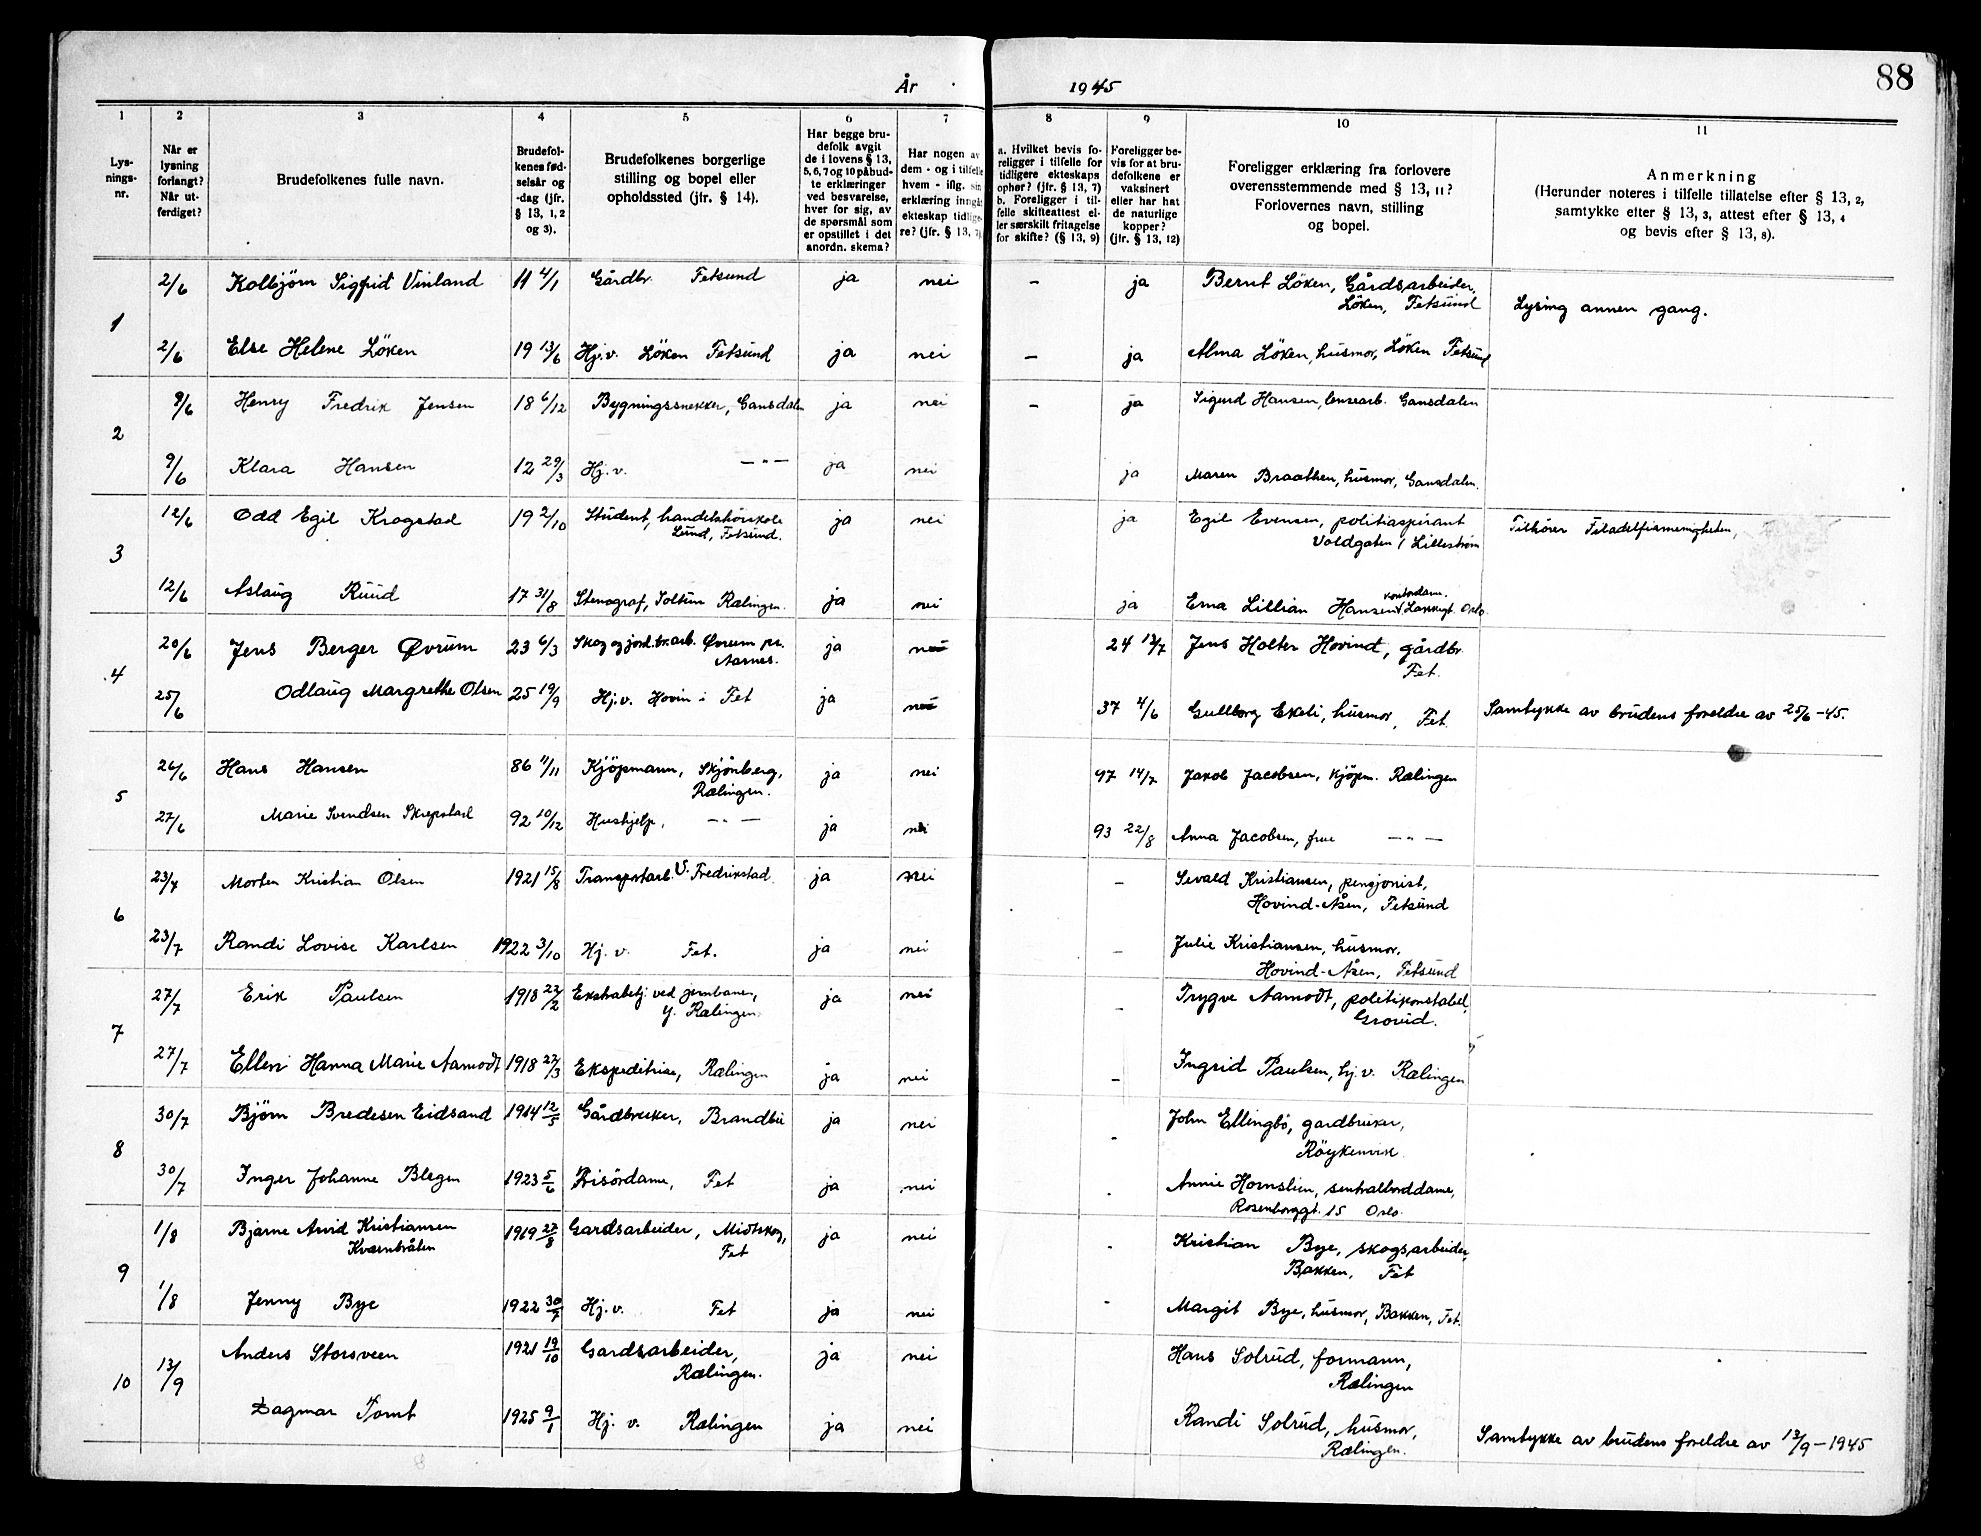 88
År 1945
1 2 3 4 5 6 7 8 9 10 11
Lys-
nings-
nr.
Når er
lysning
forlangt?
Når ut-
ferdiget?
Brudefolkenes fulle navn.
Brudefol-
kenes fød-
selsår og
-dag (jfr.
§ 13, 1, 2
og 3).
Brudefolkenes borgerlige
stilling og bopel eller
opholdssted (jfr. § 14).
Har begge bru-
defolk avgit
de i lovens § 13,
5, 6, 7 og 10 påbud-
te erklæringer
ved besvarelse,
hver for sig, av
de spørsmål som
er opstillet i det
anordn. skema?
Har nogen av
dem - og i tilfelle
hvem - iflg. sin
erklæring inngå
ekteskap tidlige-
re? (jfr. § 13, 7)
a. Hvilket bevis fo-
religger i tilfelle for
tidligere ekteskaps
ophør? (jfr. § 13, 7)
b. Foreligger i til-
felle skifteattest el-
ler særskilt fritagelse
for skifte? (§ 13, 9)
Foreligger be-
vis for at bru-
defolkene er
vaksinert
eller har hat
de naturlige
kopper?
(jfr. § 13, 12)
Foreligger erklæring fra forlovere
overensstemmende med § 13, 11?
Forlovernes navn, stilling
og bopel.
Anmerkning
(Herunder noteres i tilfelle tillatelse efter § 13, 2,
samtykke efter § 13, 3, attest efter § 13, 4
og bevis efter § 13, 8).
1 2/6 Kolbjørn Sigfrid Vinland 11 4/1 Gårdbr. Fetsund ja nei - ja Bernt Löken, Gårdsarbeider,
Löken, Fetsund
Lysing annen gang.
2/6 Else Helene Löken 19 13/6 Hj.v. Löken Fetsund ja nei - ja Alma Löken, husmor, Löken Fetsund
2 9/6 Henry Fredrik Jensen 18 6/12 Bygningssnekker, Gansdalen ja nei - ja Sigurd Hansen, lensearb. Gansdalen
9/6 Klara Hansen 12 29/3 Hj.v. —"— ja nei ja Maren Braathen, husmor, Gansdalen.
3 12/6 Odd Egil Krogstad 19 2/10 Student, handelshöiskole
Lund, Fetsund.
ja nei ja Egil Evensen, politiaspirant
Voldgaten 1 Lilleström
Tilhörer Filadelfiamenigheten,
12/6 Aslaug Ruud 17 31/8 Stenograf, Toltun Rælingen. ja nei ja Erna Lillian Hansen, kontordam. Oslo.
4 20/6 Jens Berger Øvrum 23 6/3 Skog og jord.br.arb. Øvrum pr.
Aarnes.
ja nei 24 12/7 Jens Holter Hovind, gårdbr.
Fet.
25/6 Odlaug Margrethe Olsen 25 19/9 Hj.v. Hovin i Fet ja nei 37 4/6 Gullborg Ekeli, husmor, Fet. Samtykke av brudens foreldre av 25/6-45.
5 26/6 Hans Hansen 86 11/11 Kjöpmann, Skjönberg,
Rælingen.
ja nei 97 14/7 Jakob Jacobsen, kjöpm. Rælingen
27/6 Marie Svendsen Skrepstad 92 10/12 Hushjelp, —"— ja nei 93 22/8 Anna Jacobsen, frue —"—
6 23/7 Morten Kristian Olsen 1921 15/8 Transportarb. V. Fredrikstad ja nei - Sevald Kristiansen, pensjonist,
Hovind-Åsen, Fetsund
23/7 Randi Lovise Karlsen 1922 3/10 Hj. v. Fet. ja nei - Julie Kristiansen, husmor,
Hovind-Åsen, Fetsund
7 27/7 Erik Paulsen 1918 27/2 Ekstrabetj. ved jernbanen,
Y. Rælingen.
ja nei - Trygve Aamodt, politikonstabel,
Grorud.
27/7 Ellen Hanna Marie Aamodt 1918 27/3 Ekspeditrise, Rælingen ja nei - Ingrid Paulsen, hj.v. Rælingen
8 30/7 Bjørn Bredesen Eidsand 1914 12/5 Gårdbruker, Brandbu ja nei - John Ellingbö, gardbruker,
Röykenvik
30/7 Inger Johanne Blegen 1923 5/6 Frisördame, Fet ja nei - Annie Hornslien, sentralborddame,
Rosenborggt. 15 Oslo.
9 1/8 Bjarne Arvid Kristiansen
Kværnbråten
1919 27/8 Gardsarbeider, Midtskog,
Fet
ja nei - Kristian Bye, skogsarbeider,
Bakken, Fet
1/8 Jenny Bye 1922 30/7 Hj.v. Fet ja nei - Margit Bye, husmor, Bakken, Fet.
10 13/9 Anders Storsveen 1921 19/10 Gardsarbeider,
Rælingen.
ja nei Hans Solrud, formann,
Rælingen
Dagmar Tomt 1925 9/1 Hj. v. Rælingen ja nei Randi Solrud, husmor,
Rælingen.
Samtykke av brudens foreldre av 13/9-1945